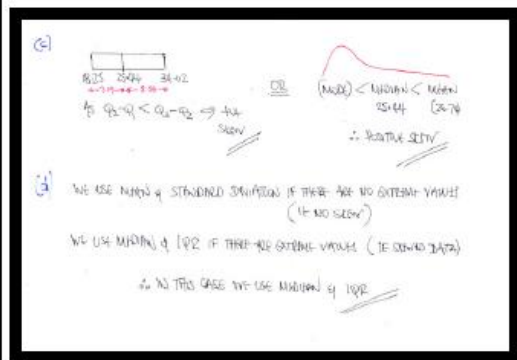 (c)
18.25 25.44 34.02
As Q₂-Q₁ < Q₃-Q₂ ⇒ +ve
SKEW
OR
(MODE) < MEDIAN < MEAN
25.44
∴ POSITIVE SKEW
(d)
WE USE MEAN & STANDARD DEVIATION IF THERE ARE NO EXTREME VALUES
(IE NO SKEW)
WE USE MEDIAN & IQR IF THERE ARE EXTREME VALUES (IE SKEWED DATA)
∴ IN THIS CASE WE USE MEDIAN & IQR